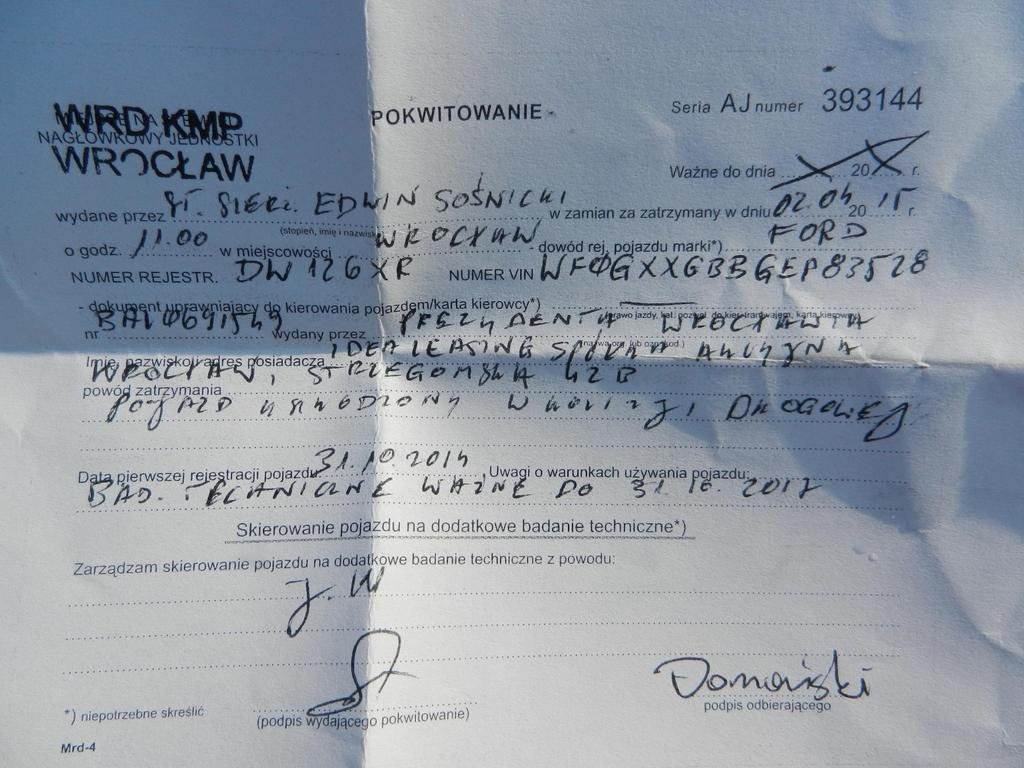 WRD KMP
NAGŁÓWKOWY JEDNOSTKI
WROCŁAW
POKWITOWANIE
Seria AJ numer 393144
Ważne do dnia X 20 X r.
wydane przez ST. SIERŻ. EDWIN SOŚNICKI w zamian za zatrzymany w dniu 02.04 2015 r.
(stopień, imię i nazwisko)
o godz. 11.00 w miejscowości WROCŁAW - dowód rej. pojazdu marki*) FORD
NUMER REJESTR. DW126XR NUMER VIN WF0GXXGBBGEP83528
- dokument uprawniający do kierowania pojazdem/karta kierowcy*)
nr wydany przez PREZYDENTA WROCŁAWIA
Imię, nazwisko i adres posiadacza IDEA LEASING SPÓŁKA AKCYJNA
WROCŁAW, STRZEGOMSKA 42B
powód zatrzymania
POJAZD USZKODZONY W KOLIZJI DROGOWEJ
Data pierwszej rejestracji pojazdu 31.10.2014 Uwagi o warunkach używania pojazdu:
BAD. TECHNICZNE WAŻNE DO 31.10.2017
Skierowanie pojazdu na dodatkowe badanie techniczne*)
Zarządzam skierowanie pojazdu na dodatkowe badanie techniczne z powodu:
J.W
Domański
*) niepotrzebne skreślić
(podpis wydającego pokwitowanie)
podpis odbierającego
Mrd-4